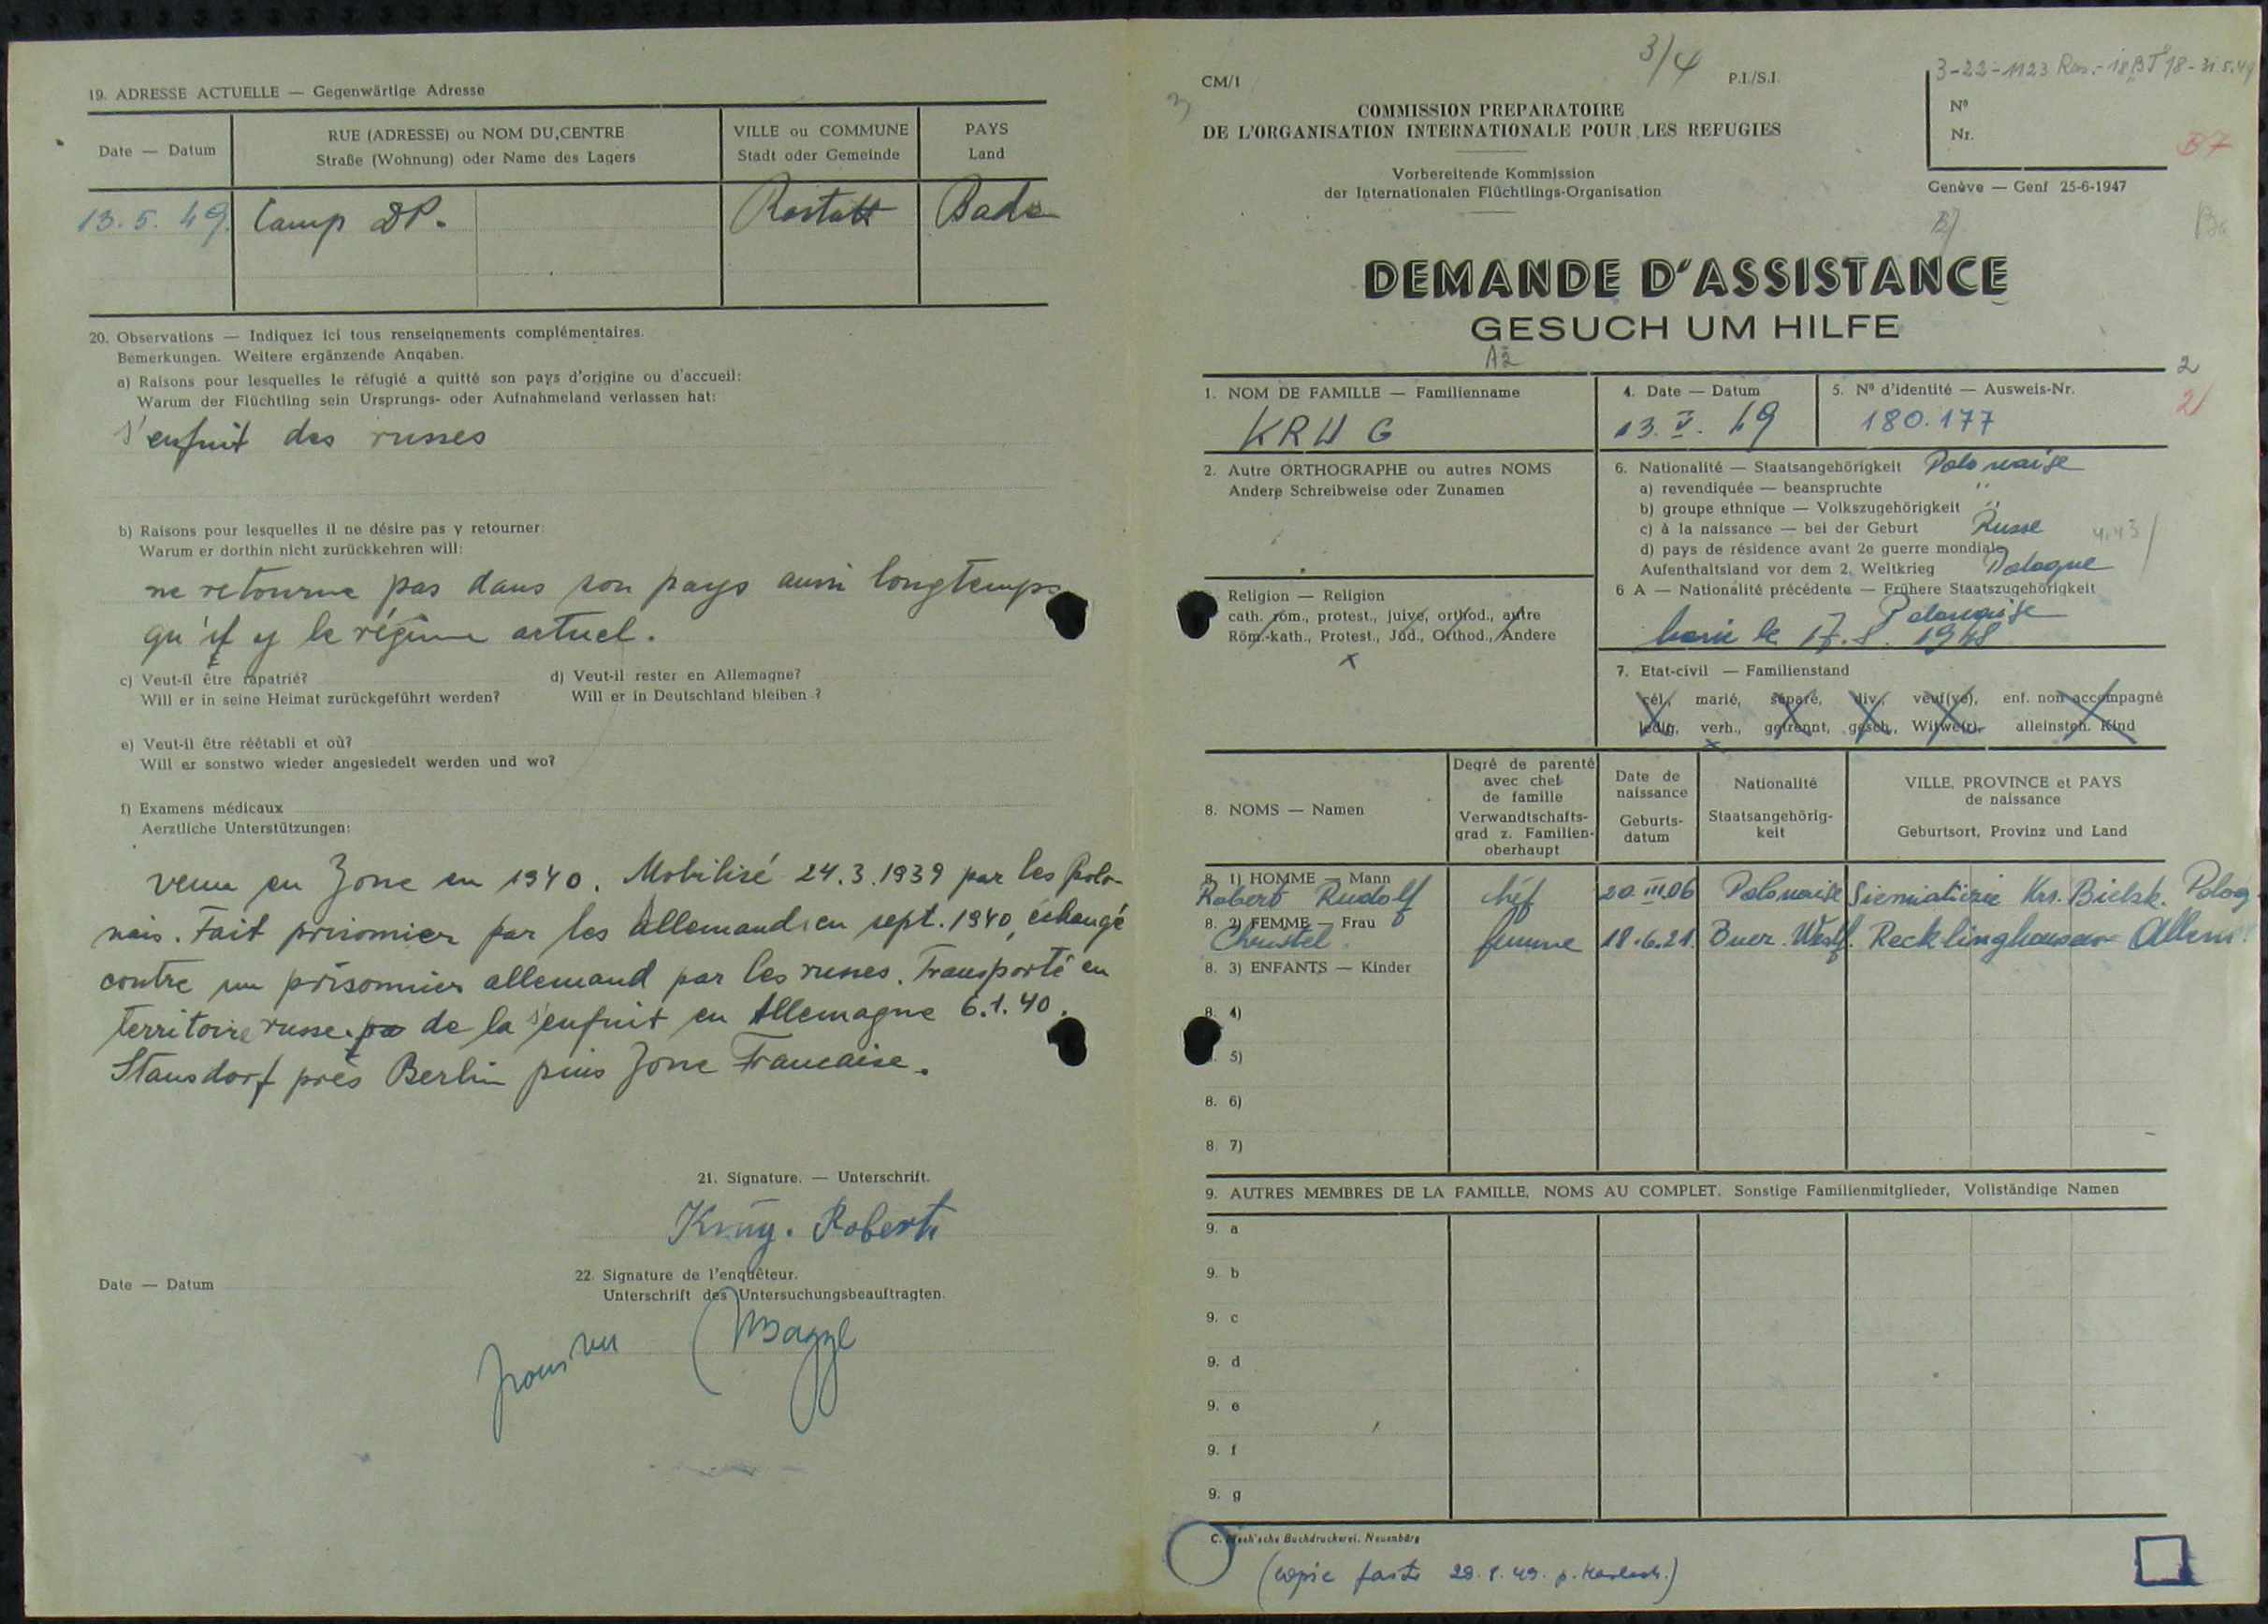 19. ADRESSE ACTUELLE — Gegenwärtige Adresse
Date — Datum
RUE (ADRESSE) ou NOM DU CENTRE
Straße (Wohnung) oder Name des Lagers
VILLE ou COMMUNE
Stadt oder Gemeinde
PAYS
Land
13. 5. 49. Camp DP. Rastatt Bade
20. Observations — Indiquez ici tous renseignements complémentaires.
Bemerkungen. Weitere ergänzende Angaben.
a) Raisons pour lesquelles le réfugié a quitté son pays d'origine ou d'accueil:
Warum der Flüchtling sein Ursprungs- oder Aufnahmeland verlassen hat:
s'enfuit des russes
b) Raisons pour lesquelles il ne désire pas y retourner:
Warum er dorthin nicht zurückkehren will:
ne retourne pas dans son pays aussi longtemps
qu'il y le régime actuel.
c) Veut-il être rapatrié? d) Veut-il rester en Allemagne?
Will er in seine Heimat zurückgeführt werden? Will er in Deutschland bleiben ?
e) Veut-il être réétabli et où?
Will er sonstwo wieder angesiedelt werden und wo?
f) Examens médicaux
Aerztliche Unterstützungen:
venu en Zone en 1940. Mobilisé 24.3.1939 par les Polo-
nais. Fait prisonnier par les Allemands en sept. 1940, échangé
contre un prisonnier allemand par les russes. Transporté en
territoire russe. de la s'enfuit en Allemagne 6.1.40.
Stansdorf près Berlin puis Zone Francaise.
21. Signature. — Unterschrift.
Krug. Robert
Date — Datum
22. Signature de l'enquêteur.
Unterschrift des Untersuchungsbeauftragten.
CM/1
3/4
P.I./S.I.
3
3-22-1123
COMMISSION PREPARATOIRE
DE L'ORGANISATION INTERNATIONALE POUR LES REFUGIES
Vorbereitende Kommission
der Internationalen Flüchtlings-Organisation
Nº
Nr.
B7
Genève — Genf 25-6-1947
DEMANDE D'ASSISTANCE
GESUCH UM HILFE
2
2
1. NOM DE FAMILLE — Familienname
KRUG
4. Date — Datum
13. V. 49
5. Nº d'identité — Ausweis-Nr.
180.177
2. Autre ORTHOGRAPHE ou autres NOMS
Andere Schreibweise oder Zunamen
6. Nationalité — Staatsangehörigkeit Polonaise
a) revendiquée — beanspruchte "
b) groupe ethnique — Volkszugehörigkeit "
c) à la naissance — bei der Geburt Russe
d) pays de résidence avant 2e guerre mondiale
Aufenthaltsland vor dem 2. Weltkrieg Pologne
Religion — Religion
cath. röm., protest., juive, orthod., autre
Röm.-kath., Protest., Jüd., Orthod., Andere
x
6 A — Nationalité précédente — Frühere Staatszugehörigkeit
Polonaise
le 17. 8. 1948
7. Etat-civil — Familienstand
cél., marié, séparé, div., veuf(ve), enf. non accompagné
ledig, verh., getrennt, gesch., Witwe(r), alleinsteh. Kind
x
8. NOMS — Namen
Degré de parenté
avec chef
de famille
Verwandtschafts-
grad z. Familien-
oberhaupt
Date de
naissance
Geburts-
datum
Nationalité
Staatsangehörig-
keit
VILLE, PROVINCE et PAYS
de naissance
Geburtsort, Provinz und Land
8. 1) HOMME — Mann
Robert Rudolf chef 20.III.06 Polonaise Krs. Bielsk. Polog
8. 2) FEMME — Frau
Christel femme 18.6.21. Buer. Westf. Recklinghausen Allem.
8. 3) ENFANTS — Kinder
8. 4)
5)
8. 6)
8. 7)
9. AUTRES MEMBRES DE LA FAMILLE, NOMS AU COMPLET. Sonstige Familienmitglieder, Vollständige Namen
9. a
9. b
9. c
9. d
9. e
9. f
9. g
Buchdruckerei, Neuenbürg
(copie faite